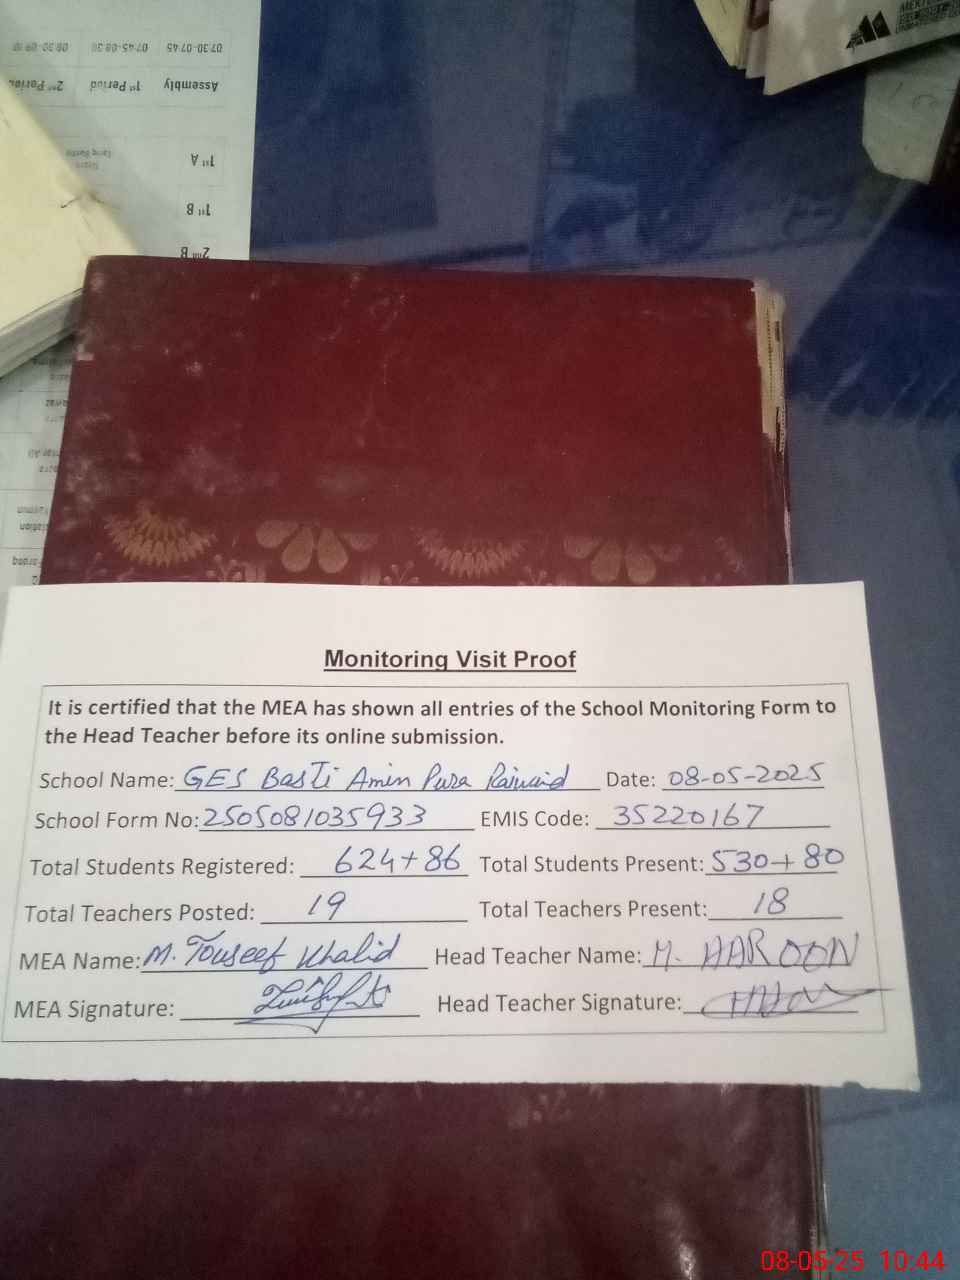 07:30-07:45 07:45-08:30 08:30-09:10
Assembly 1st Period 2nd Period
1st A
1st B
2nd B
Monitoring Visit Proof
It is certified that the MEA has shown all entries of the School Monitoring Form to
the Head Teacher before its online submission.
School Name: GES Basti Amin Pura Raiwind Date: 08-05-2025
School Form No: 2505081035933 EMIS Code: 35220167
Total Students Registered: 624+86 Total Students Present: 530+80
Total Teachers Posted: 19 Total Teachers Present: 18
MEA Name: M. Touseef Khalid Head Teacher Name: M. HAROON
MEA Signature: Head Teacher Signature:
08-05-25 10:44